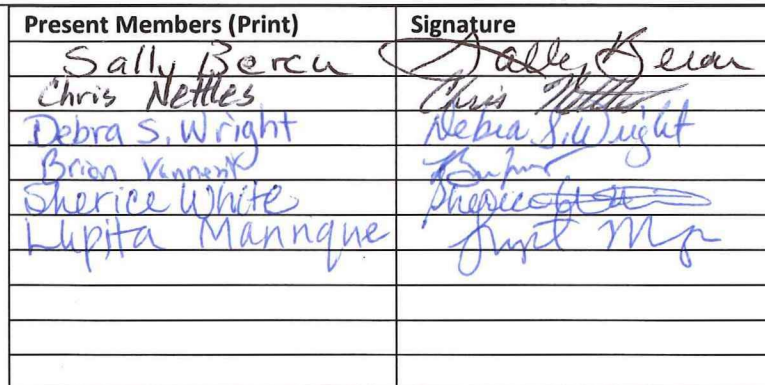 Present Members (Print) Signature
Sally Bercu Sally Bercu
Chris Nettles Chris Nettles
Debra S. Wright Debra S. Wright
Brian
Sherice White Sherice
Lupita Manrique